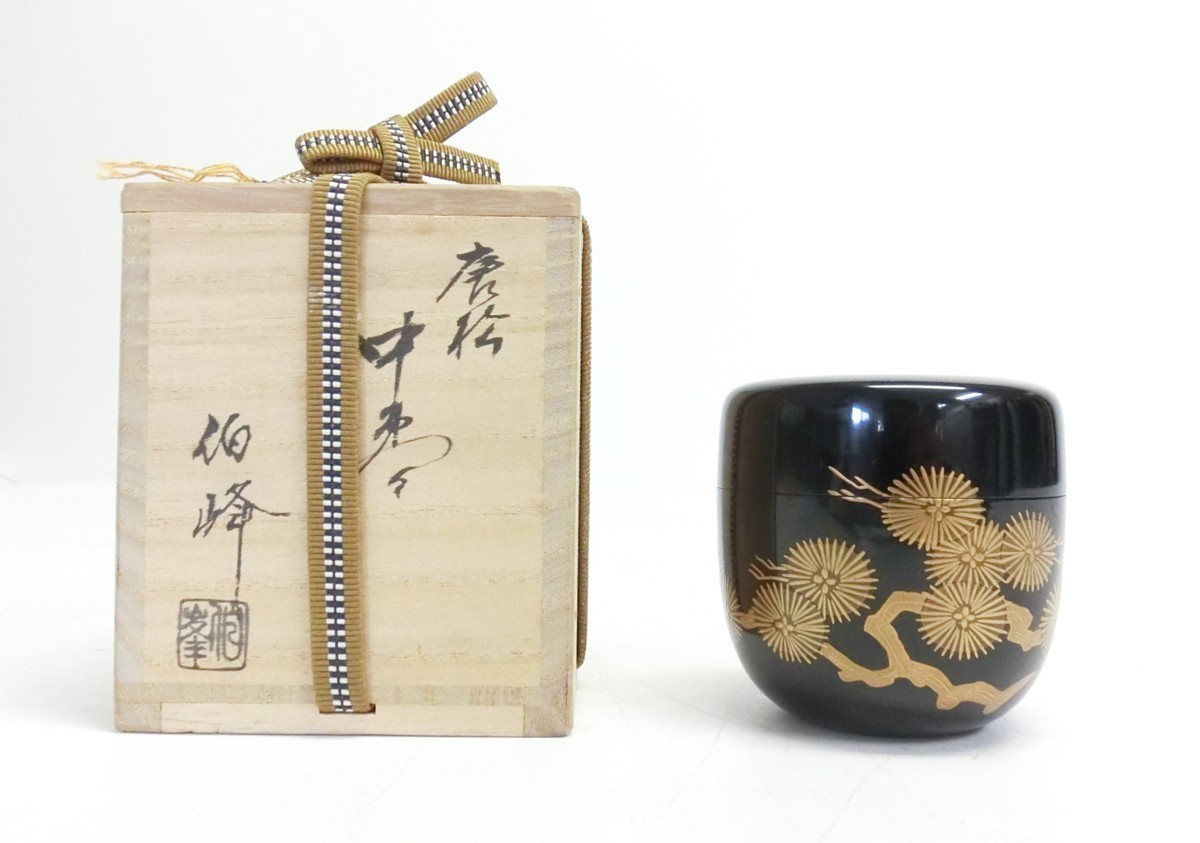 唐松
中棗
伯峰
伯峯